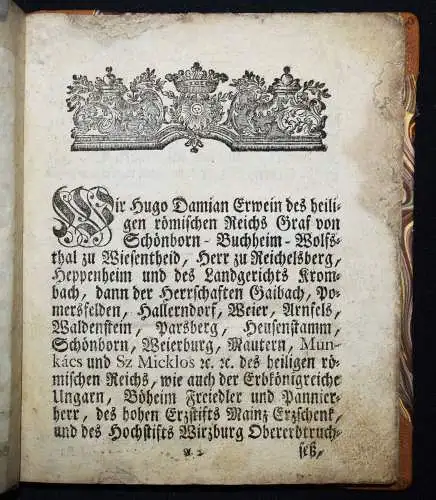 Wir Hugo Damian Erwein des heili-
gen römischen Reichs Graf von
Schönborn-Buchheim-Wolfs-
thal zu Wiesentheid, Herr zu Reichelsberg,
Heppenheim und des Landgerichts Krom-
bach, dann der Herrschaften Gaibach, Po-
mersfelden, Hallerndorf, Weier, Arnfels,
Waldenstein, Parsberg, Heusenstamm,
Schönborn, Weierburg, Mautern, Mun-
kács und Sz Micklos ꝛc. ꝛc. des heiligen rö-
mischen Reichs, wie auch der Erbkönigreiche
Ungarn, Böheim Freiedler und Pannier-
herr, des hohen Erzstifts Mainz Erzschenk,
und des Hochstifts Wirzburg Obererbtruch-
A 2
seß,